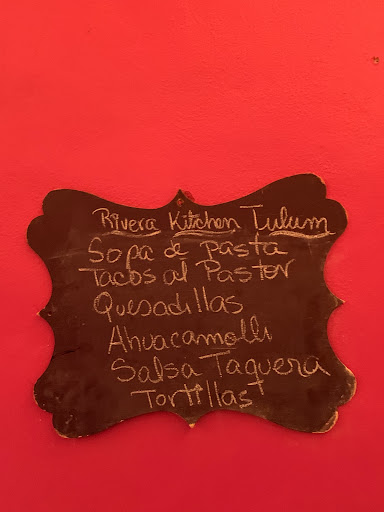 Rivera Kitchen Tulum
Sopa de pasta
Tacos al Pastor
Quesadillas
Ahuacamolli
Salsa Taquera
Tortillas